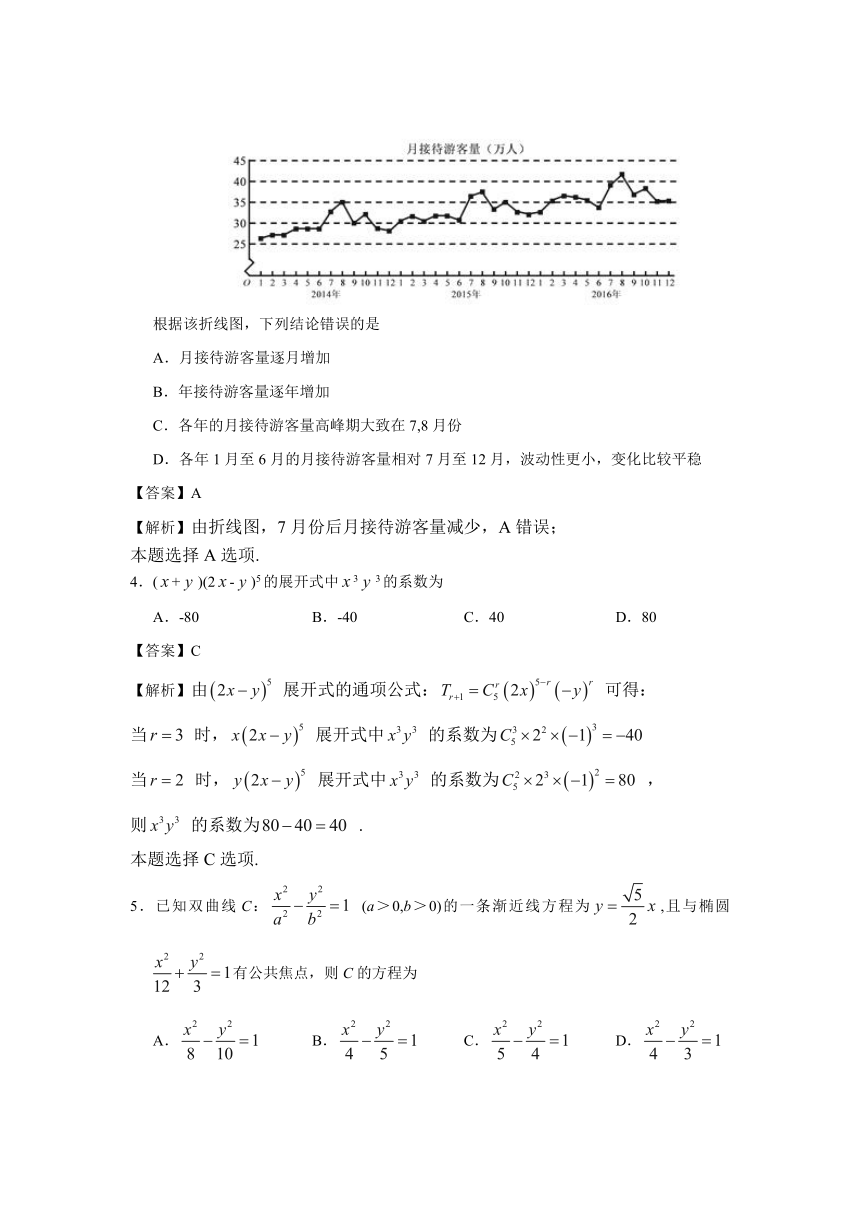 月接待游客量（万人）
45
40
35
30
25
O 1 2 3 4 5 6 7 8 9 10 11 12 1 2 3 4 5 6 7 8 9 10 11 12 1 2 3 4 5 6 7 8 9 10 11 12
2014年 2015年 2016年
根据该折线图，下列结论错误的是
A．月接待游客量逐月增加
B．年接待游客量逐年增加
C．各年的月接待游客量高峰期大致在 7,8 月份
D．各年 1 月至 6 月的月接待游客量相对 7 月至 12 月，波动性更小，变化比较平稳
【答案】A
【解析】由折线图，7 月份后月接待游客量减少，A 错误；
本题选择 A 选项.
4．( x + y )(2 x - y )⁵ 的展开式中 x ³ y ³ 的系数为
A．-80 B．-40 C．40 D．80
【答案】C
【解析】由 (2x − y)⁵ 展开式的通项公式：T_{r+1} = C_5^r (2x)^{5−r} (−y)^r 可得：
当 r = 3 时，x(2x − y)⁵ 展开式中 x³y³ 的系数为 C_5^3 × 2² × (−1)³ = −40
当 r = 2 时，y(2x − y)⁵ 展开式中 x³y³ 的系数为 C_5^2 × 2³ × (−1)² = 80 ，
则 x³y³ 的系数为 80 − 40 = 40 .
本题选择 C 选项.
5．已知双曲线 C：x²/a² − y²/b² = 1 (a＞0,b＞0)的一条渐近线方程为 y = √5/2 x ,且与椭圆
x²/12 + y²/3 = 1 有公共焦点，则 C 的方程为
A．x²/8 − y²/10 = 1 B．x²/4 − y²/5 = 1 C．x²/5 − y²/4 = 1 D．x²/4 − y²/3 = 1